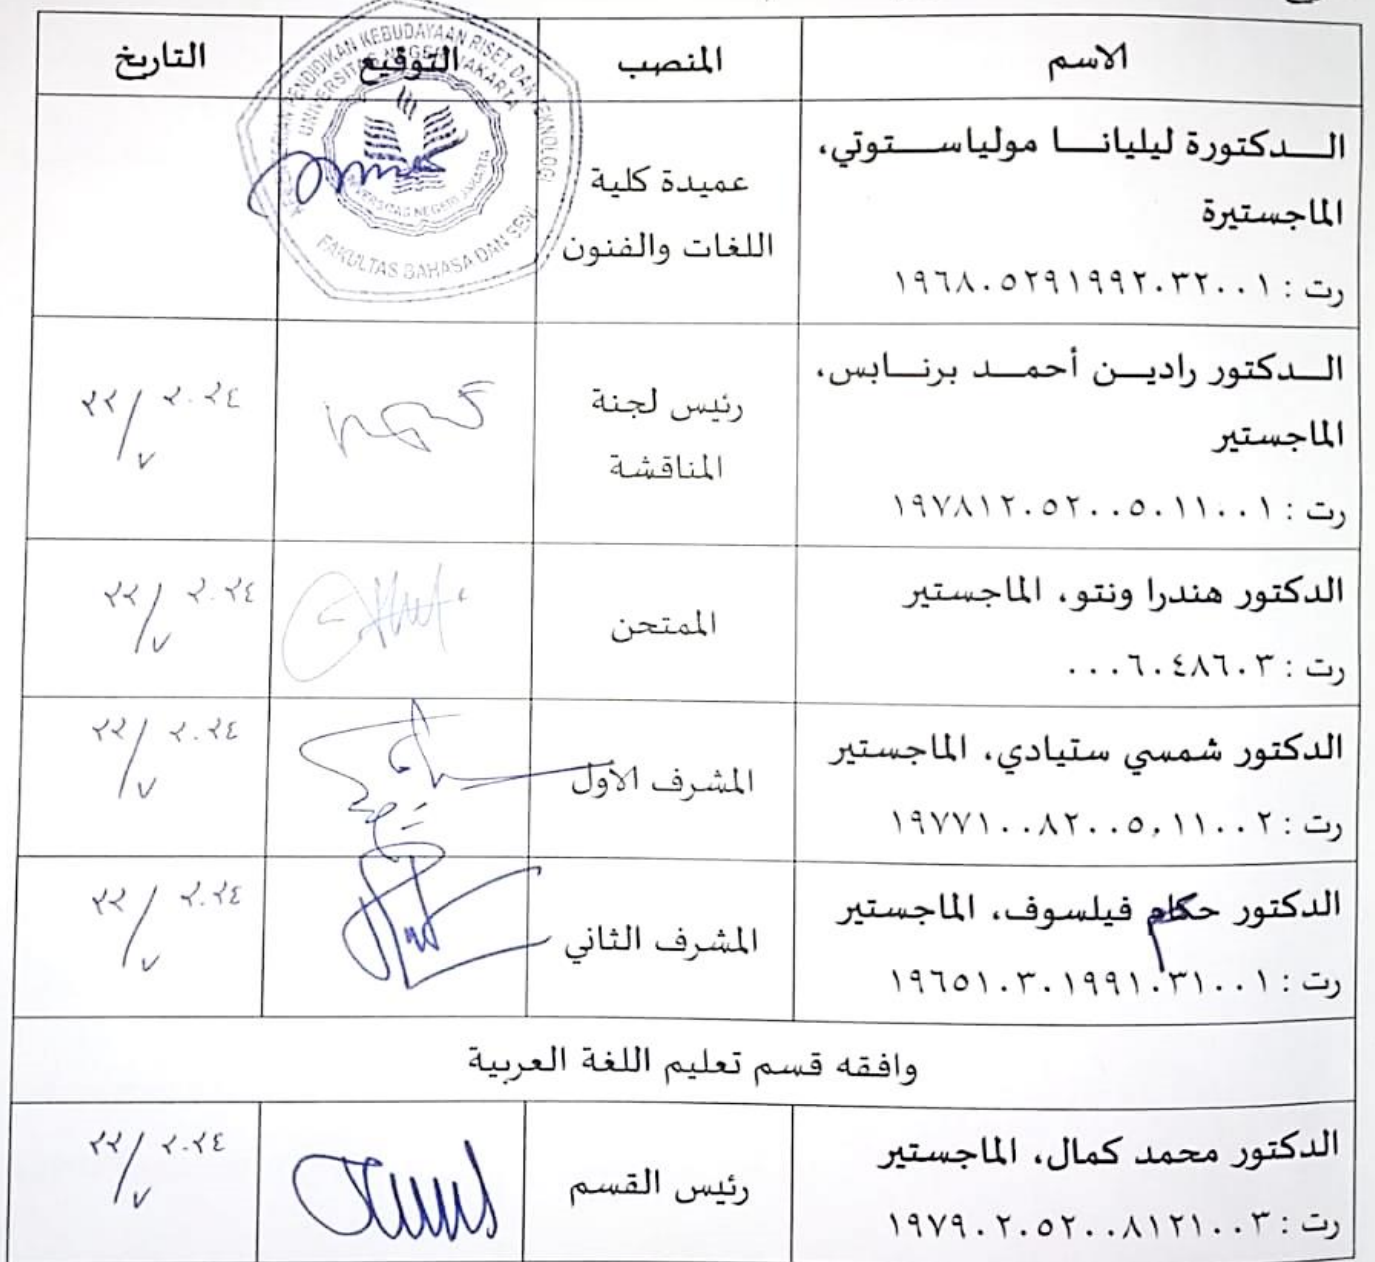 الاسم المنصب التوقيع التاريخ
الـــدكتورة ليليانـــا مولياســـتوتي،
الماجستيرة
رت : ١٩٦٨٠٥٢٩١٩٩٢٠٣٢٠٠١
عميدة كلية
اللغات والفنون
KEBUDAYAAN RISET DAN TEKNOLOGI
UNIVERSITAS NEGERI JAKARTA
UNIVERSITAS NEGERI JAKARTA
FAKULTAS BAHASA DAN SENI
الـــدكتور راديـــن أحمـــد برنـــابس،
الماجستير
رت : ١٩٧٨١٢٠٥٢٠٠٥٠١١٠٠١
رئيس لجنة
المناقشة
٢٢/٧ ٢٠٢٤
الدكتور هندرا ونتو، الماجستير
رت : ٠٠٠٦٠٤٨٦٠٣
الممتحن
٢٢/٧ ٢٠٢٤
الدكتور شمسي ستيادي، الماجستير
رت : ١٩٧٧١٠٠٨٢٠٠٥٠١١٠٠٢
المشرف الأول
٢٢/٧ ٢٠٢٤
الدكتور حكام فيلسوف، الماجستير
رت : ١٩٦٥١٠٣٠١٩٩١٠٣١٠٠١
المشرف الثاني
٢٢/٧ ٢٠٢٤
وافقه قسم تعليم اللغة العربية
الدكتور محمد كمال، الماجستير
رت : ١٩٧٩٠٢٠٥٢٠٠٨١٢١٠٠٣
رئيس القسم
٢٢/٧ ٢٠٢٤